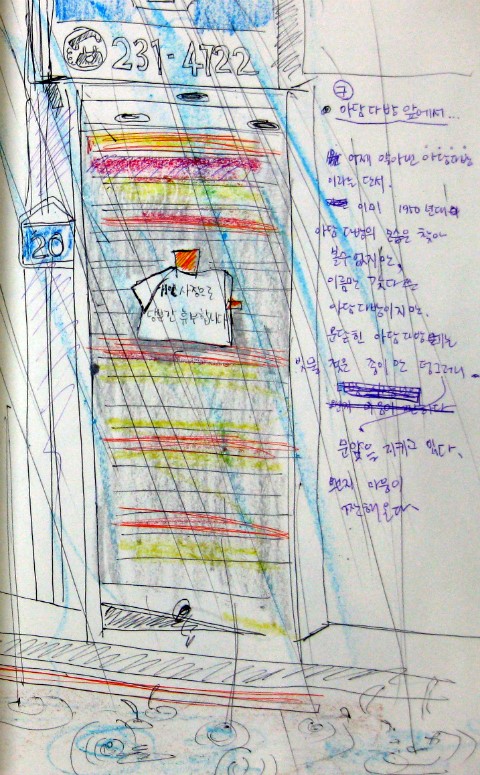 ☎ 231-4722
20
개인 사정으로
당분간 휴무합니다
⑦
아담다방 앞에서...
어제 찾아본 아담다방
이라는 단서.
이미 1950년대
아담다방의 모습은 찾아
볼 수 없지만,
이름만 그곳다운
아담다방이지만.
문닫힌 아담다방에는
빗물 젖은 종이만 덩그러니
문앞을 지키고 있다.
왠지 마음이
짠해온다